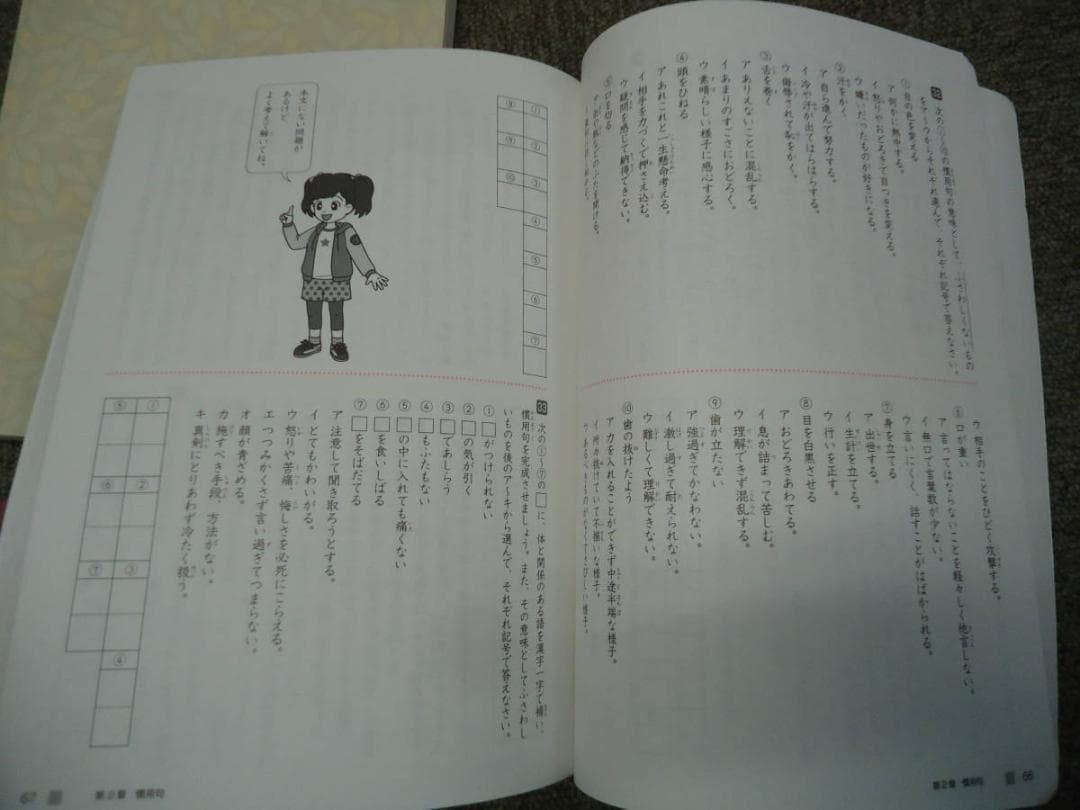 32 次の①～⑩の慣用句の意味として、ふさわしくないもの
をア～ウからそれぞれ選んで、それぞれ記号で答えなさい。
① 目の色を変える
ア 何かに熱中する。
イ 怒りやおどろきで目つきを変える。
ウ 嫌いだったものが好きになる。
② 汗をかく
ア 自ら進んで努力する。
イ 冷や汗が出てはらはらする。
ウ 侮辱されて恥をかく。
③ 舌を巻く
ア ありえないことに混乱する。
イ あまりのすごさにおどろく。
ウ 素晴らしい様子に感心する。
④ 頭をひねる
ア あれこれと一生懸命考える。
イ 相手を力づくで押さえ込む。
ウ 疑問を感じて納得できない。
⑤ 口を切る
ウ 相手のことをひどく攻撃する。
⑥ 口が重い
ア 言ってはならないことを軽々しく他言しない。
イ 無口で言葉数が少ない。
ウ 言いにくく、話すことがはばかられる。
⑦ 身を立てる
ア 出世する。
イ 生計を立てる。
ウ 行いを正す。
⑧ 目を白黒させる
ア おどろきあわてる。
イ 息が詰まって苦しむ。
ウ 理解できず混乱する。
⑨ 歯が立たない
ア 強過ぎてかなわない。
イ 激し過ぎて耐えられない。
ウ 難しくて理解できない。
⑩ 歯の抜けたよう
ア 力を入れることができず中途半端な様子。
イ 所々抜けていて不揃いな様子。
ウ あるべきものがなくてさびしい様子。
第2章 慣用句 66
① ② ③ ④ ⑤ ⑥ ⑦
⑧ ⑨ ⑩
本文にない問題が
あるけど、
よく考えて解いてね。
33 次の①～⑦の□に、体と関係のある語を漢字一字で補い、
慣用句を完成させましょう。また、その意味としてふさわし
いものを後のア～キから選んで、それぞれ記号で答えなさい。
① □がつけられない
② □の気が引く
③ □であしらう
④ □もふたもない
⑤ □の中に入れても痛くない
⑥ □を食いしばる
⑦ □をそばだてる
ア 注意して聞き取ろうとする。
イ とてもかわいがる。
ウ 怒りや苦痛、悔しさを必死にこらえる。
エ つつみかくさず言い過ぎてつまらない。
オ 顔が青ざめる。
カ 施すべき手段、方法がない。
キ 真剣にとりあわず冷たく扱う。
① ② ③ ④
⑤ ⑥ ⑦
67 第2章 慣用句